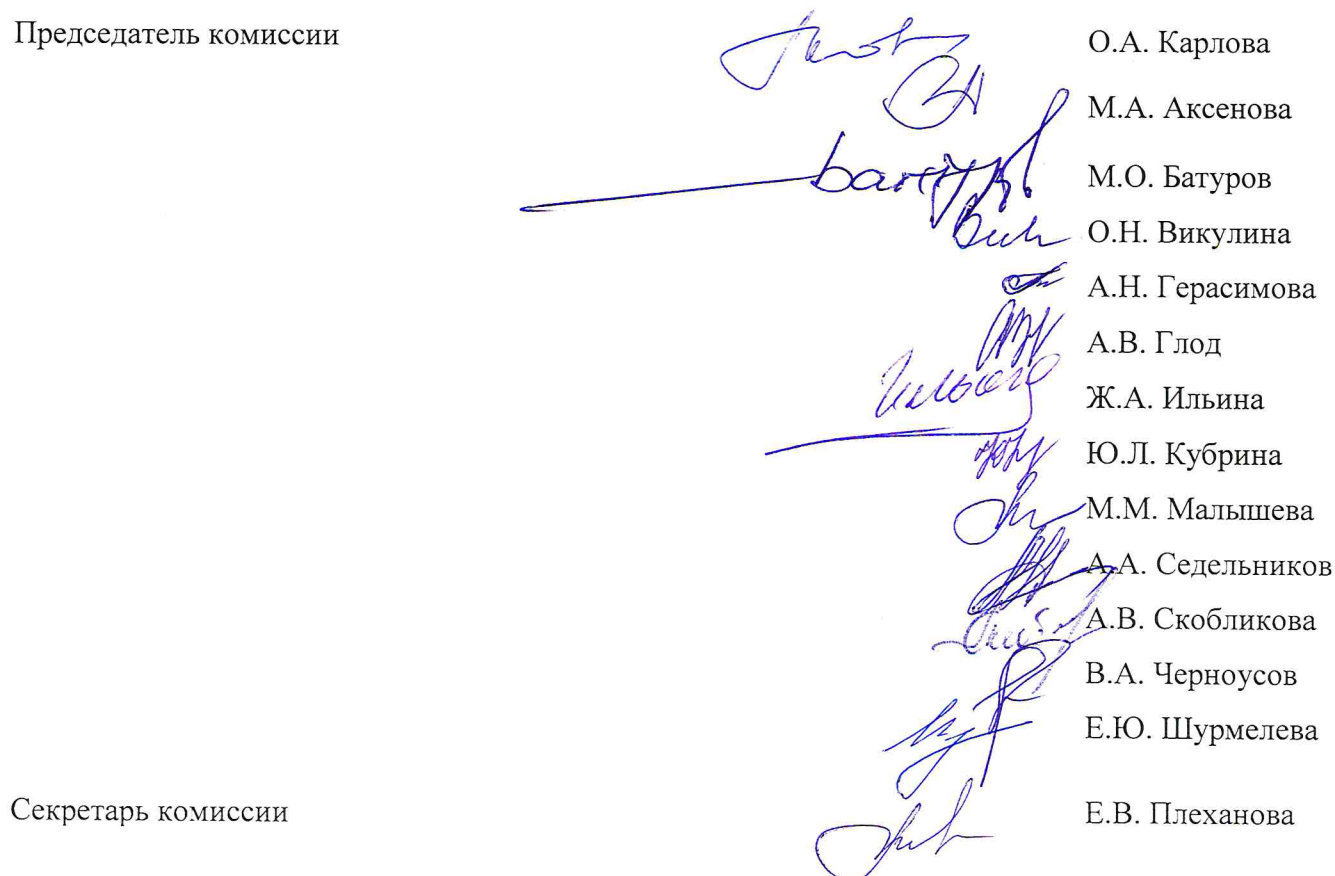 Председатель комиссии О.А. Карлова
М.А. Аксенова
М.О. Батуров
О.Н. Викулина
А.Н. Герасимова
А.В. Глод
Ж.А. Ильина
Ю.Л. Кубрина
М.М. Малышева
А.А. Седельников
А.В. Скобликова
В.А. Черноусов
Е.Ю. Шурмелева
Секретарь комиссии Е.В. Плеханова